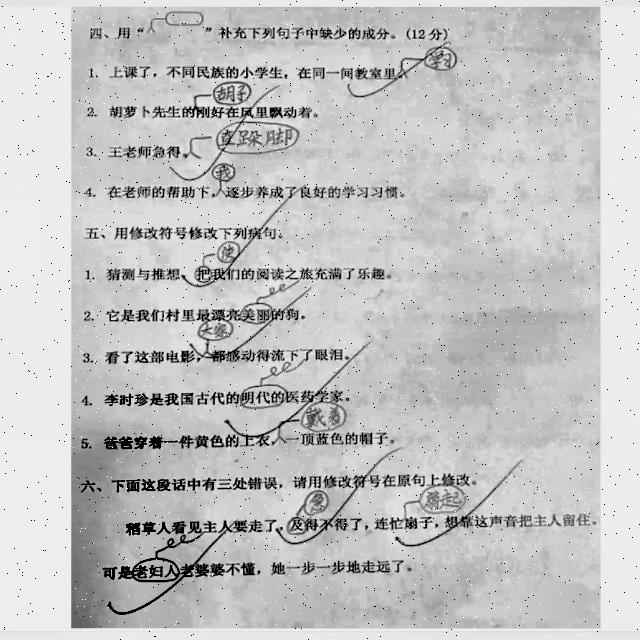 四、用“ ”补充下列句子中缺少的成分。(12分)
学习
1. 上课了，不同民族的小学生，在同一间教室里。
胡子
2. 胡萝卜先生的刚好在风里飘动着。
直跺脚
3. 王老师急得。
我
4. 在老师的帮助下，逐步养成了良好的学习习惯。
五、用修改符号修改下列病句。
使
1. 猜测与推想，把我们的阅读之旅充满了乐趣。
2. 它是我们村里最漂亮美丽的狗。
大家
3. 看了这部电影，都感动得流下了眼泪。
4. 李时珍是我国古代的明代的医药学家。
戴着
5. 爸爸穿着一件黄色的上衣，一顶蓝色的帽子。
六、下面这段话中有三处错误，请用修改符号在原句上修改。
急 扇起
稻草人看见主人要走了，及得不得了，连忙扇子，想靠这声音把主人留住。
可是老妇人老婆婆不懂，她一步一步地走远了。